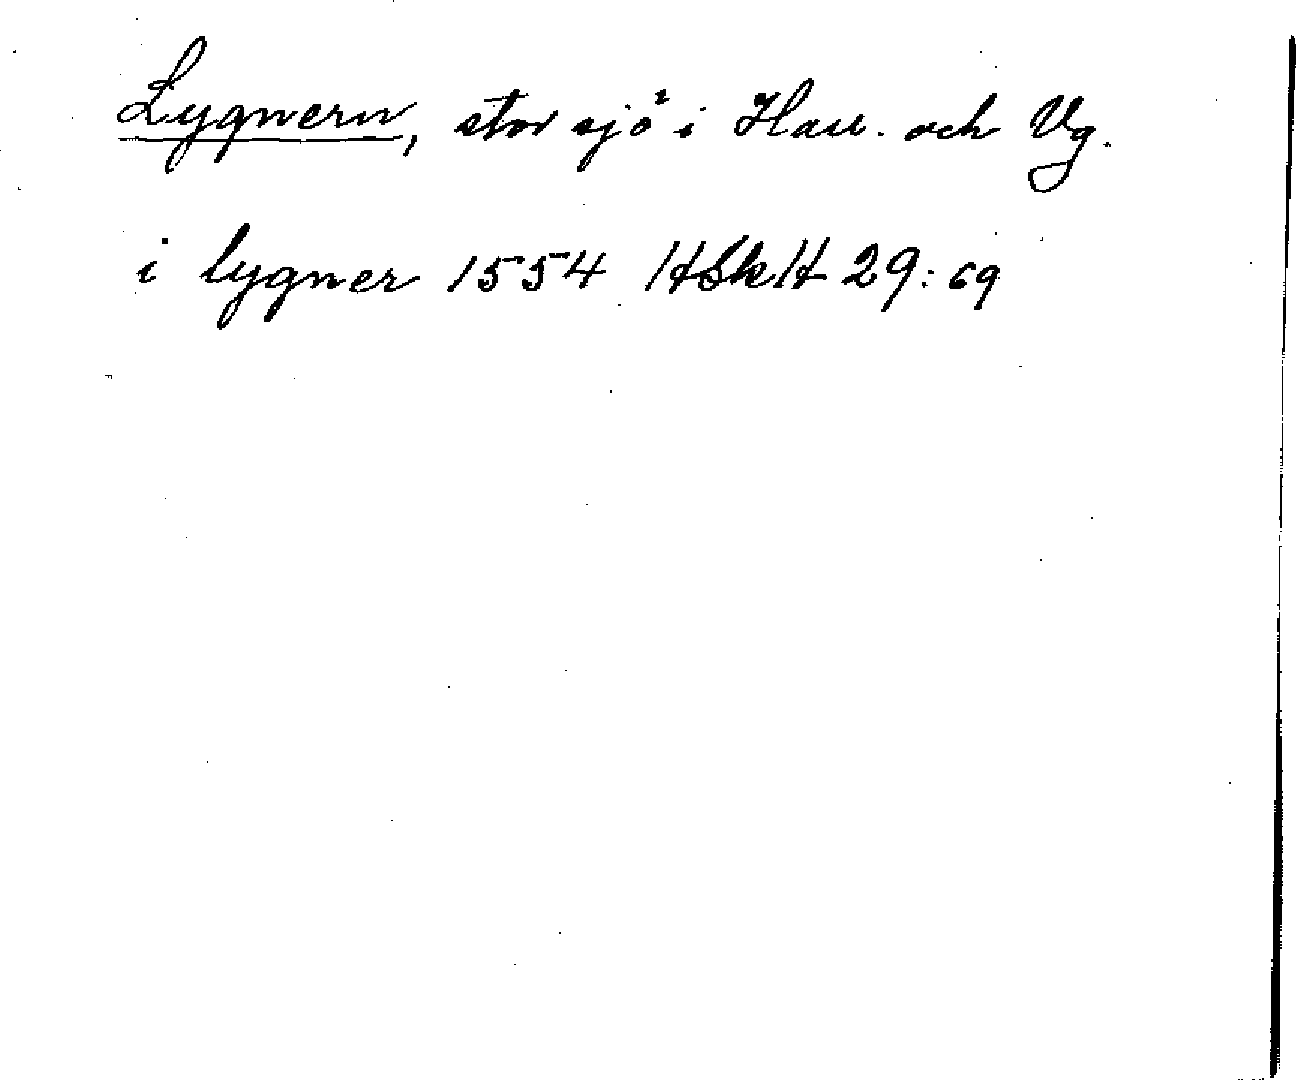 Lygnern, stor sjö i Hall. och Vg.
i lygner 1554 HSkH 29:69